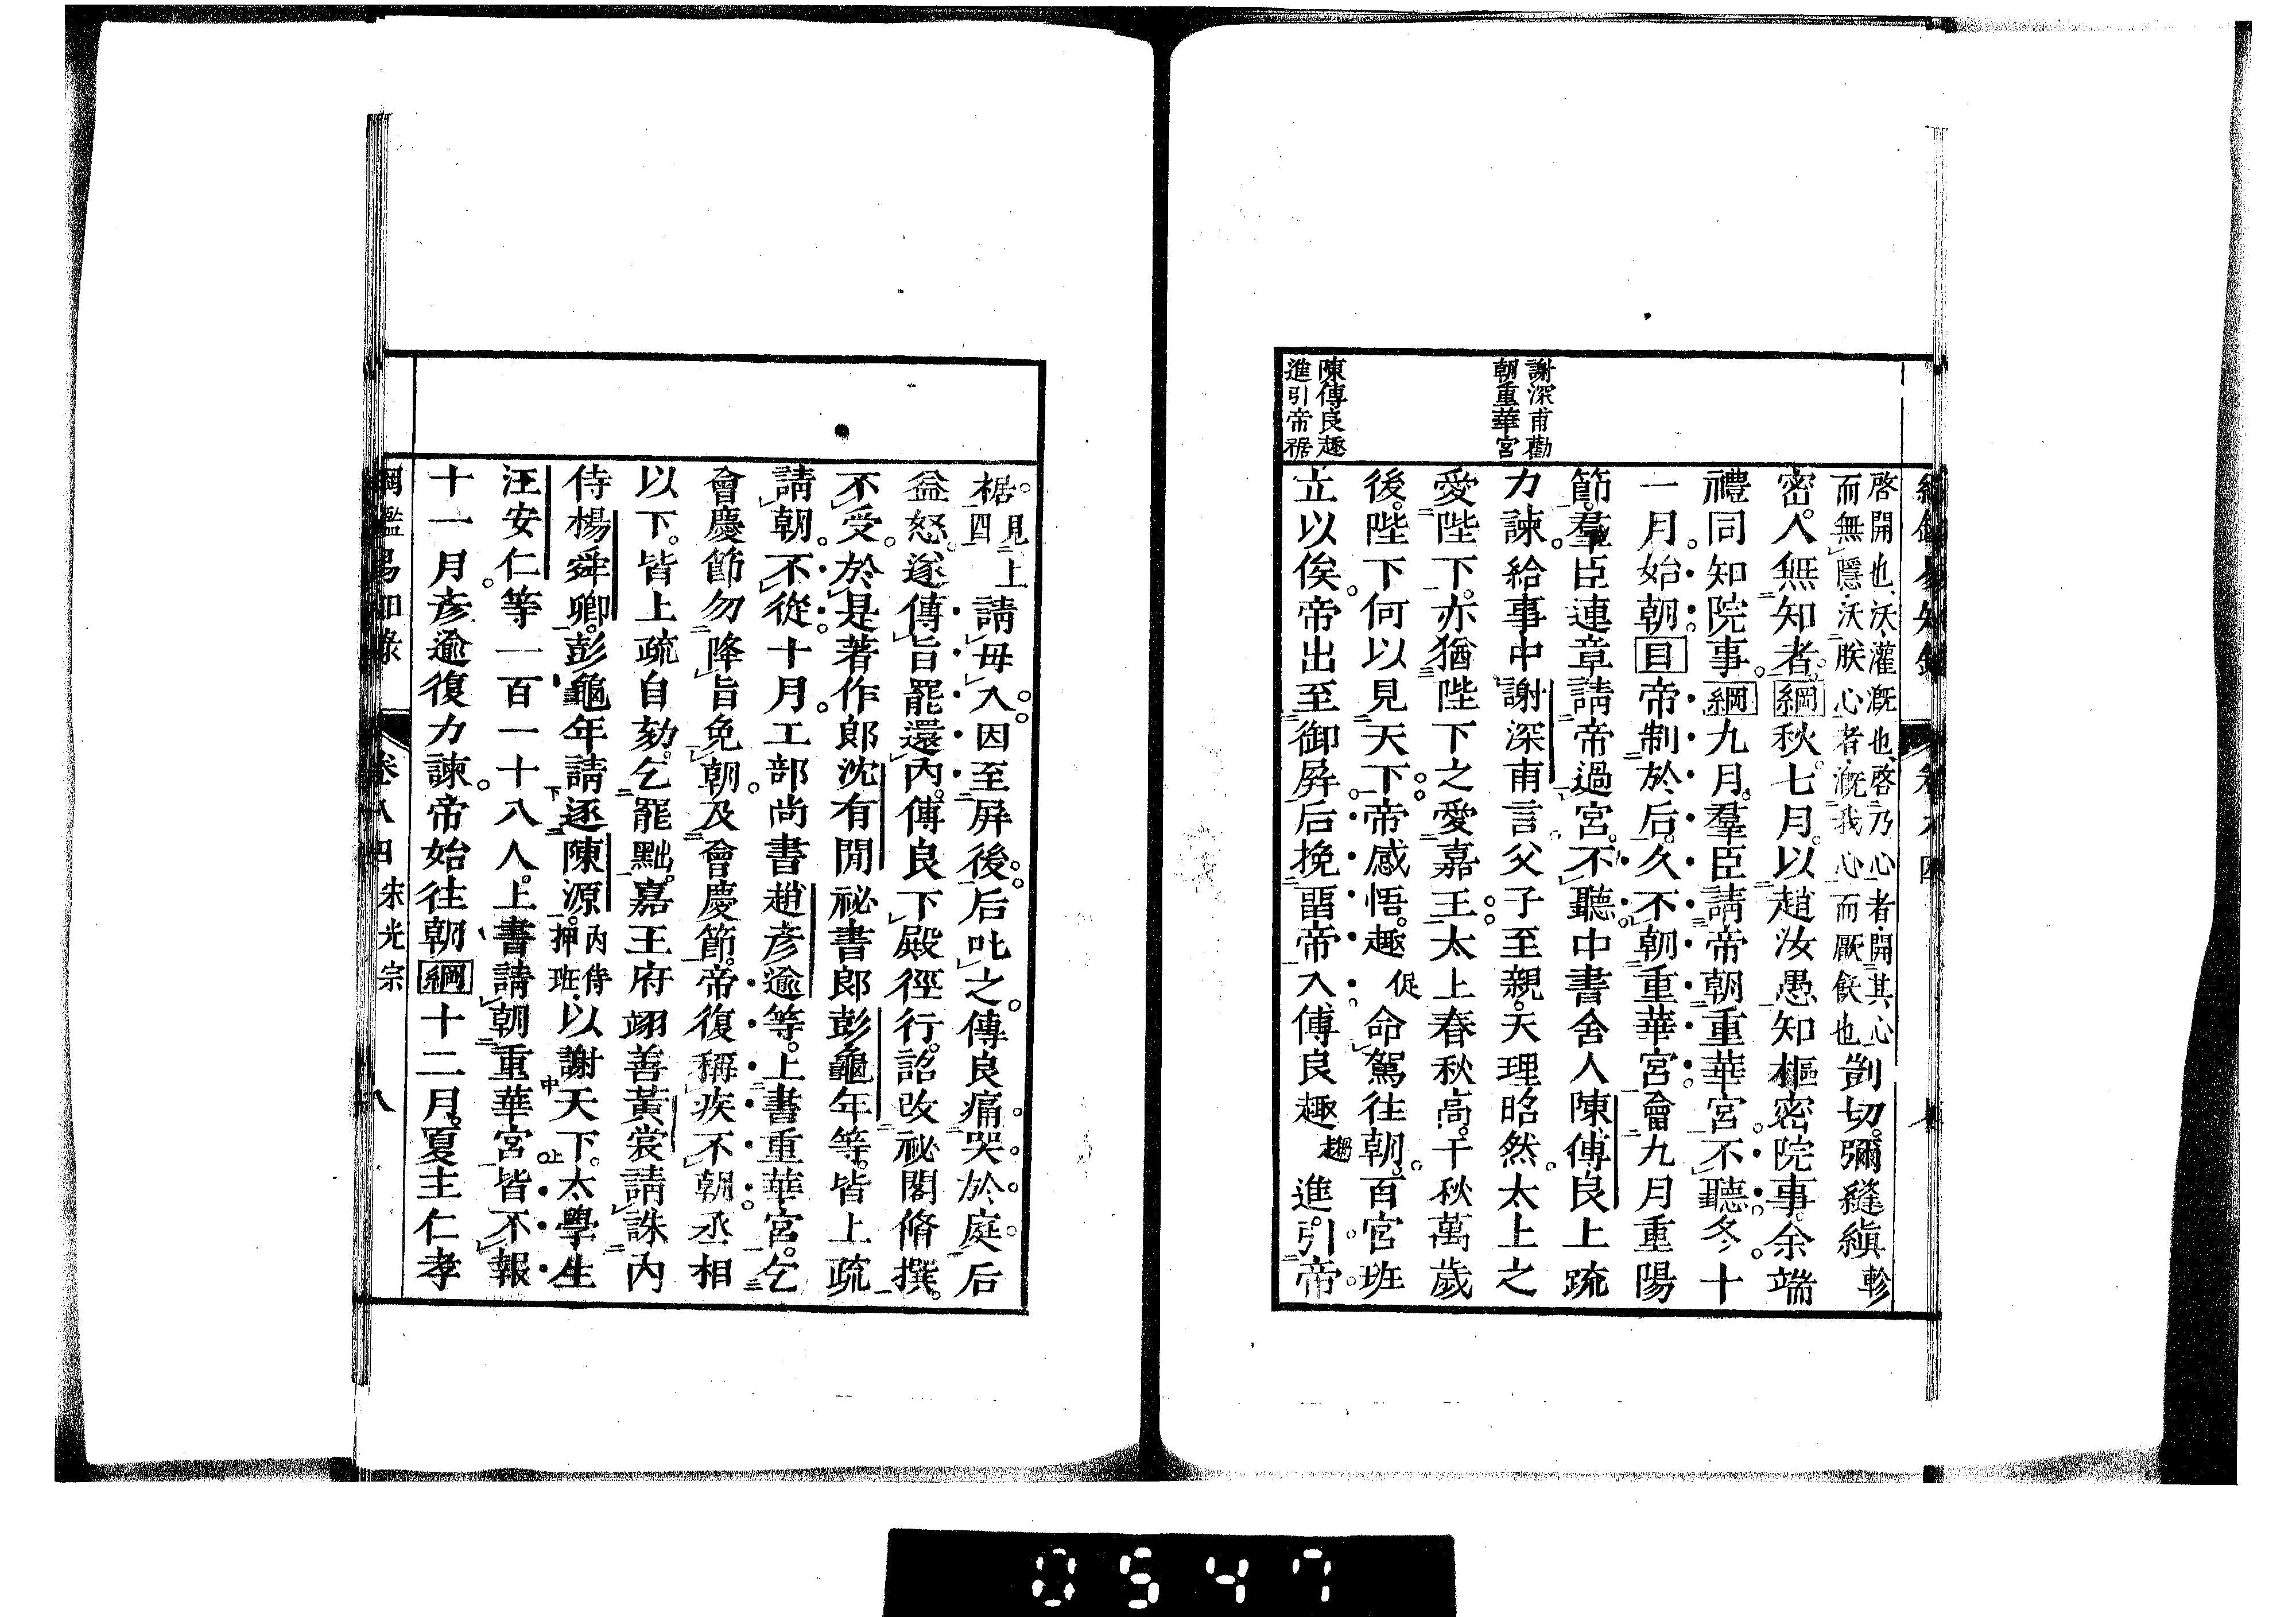 謝深甫勸
朝重華宮
陳傅良趣
進引帝裾
啓開也沃灌漑也啓乃心者開其心
而無隱沃朕心者漑我心而厭飫也
剴切彌縫縝軫
密人無知者綱秋七月以趙汝愚知樞密院事余端
禮同知院事綱九月羣臣請帝朝重華宮不聽冬十
一月始朝目帝制於后久不朝重華宮會九月重陽
節羣臣連章請帝過宮不聽中書舍人陳傅良上疏
力諫給事中謝深甫言父子至親天理昭然太上之
愛陛下亦猶陛下之愛嘉王太上春秋高千秋萬歲
後陛下何以見天下帝感悟趣促命駕往朝百官班
立以俟帝出至御屛后挽畱帝入傅良趣趨進引帝
裾見上四請毋入因至屛後后叱之傅良痛哭於庭后
益怒遂傳旨罷還內傅良下殿徑行詔改祕閣脩撰
不受於是著作郎沈有開祕書郎彭龜年等皆上疏
請朝不從十月工部尚書趙彥逾等上書重華宮乞
會慶節勿降旨免朝及會慶節帝復稱疾不朝丞相
以下皆上疏自劾乞罷黜嘉王府翊善黃裳請誅內
侍楊舜卿彭龜年請逐陳源內侍押班以謝天下太學生
汪安仁等一百一十八人上書請朝重華宮皆不報
十一月彥逾復力諫帝始往朝綱十二月夏主仁孝
綱鑑易知錄 卷八四 宋光宗 八